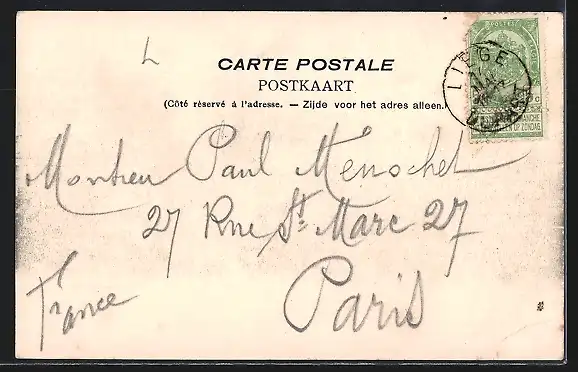 L
CARTE POSTALE
POSTKAART
(Côté réservé à l'adresse. — Zijde voor het adres alleen.)
POSTES
LIEGE
Monsieur Paul Menochet
27 Rue St Marc 27
Paris
France